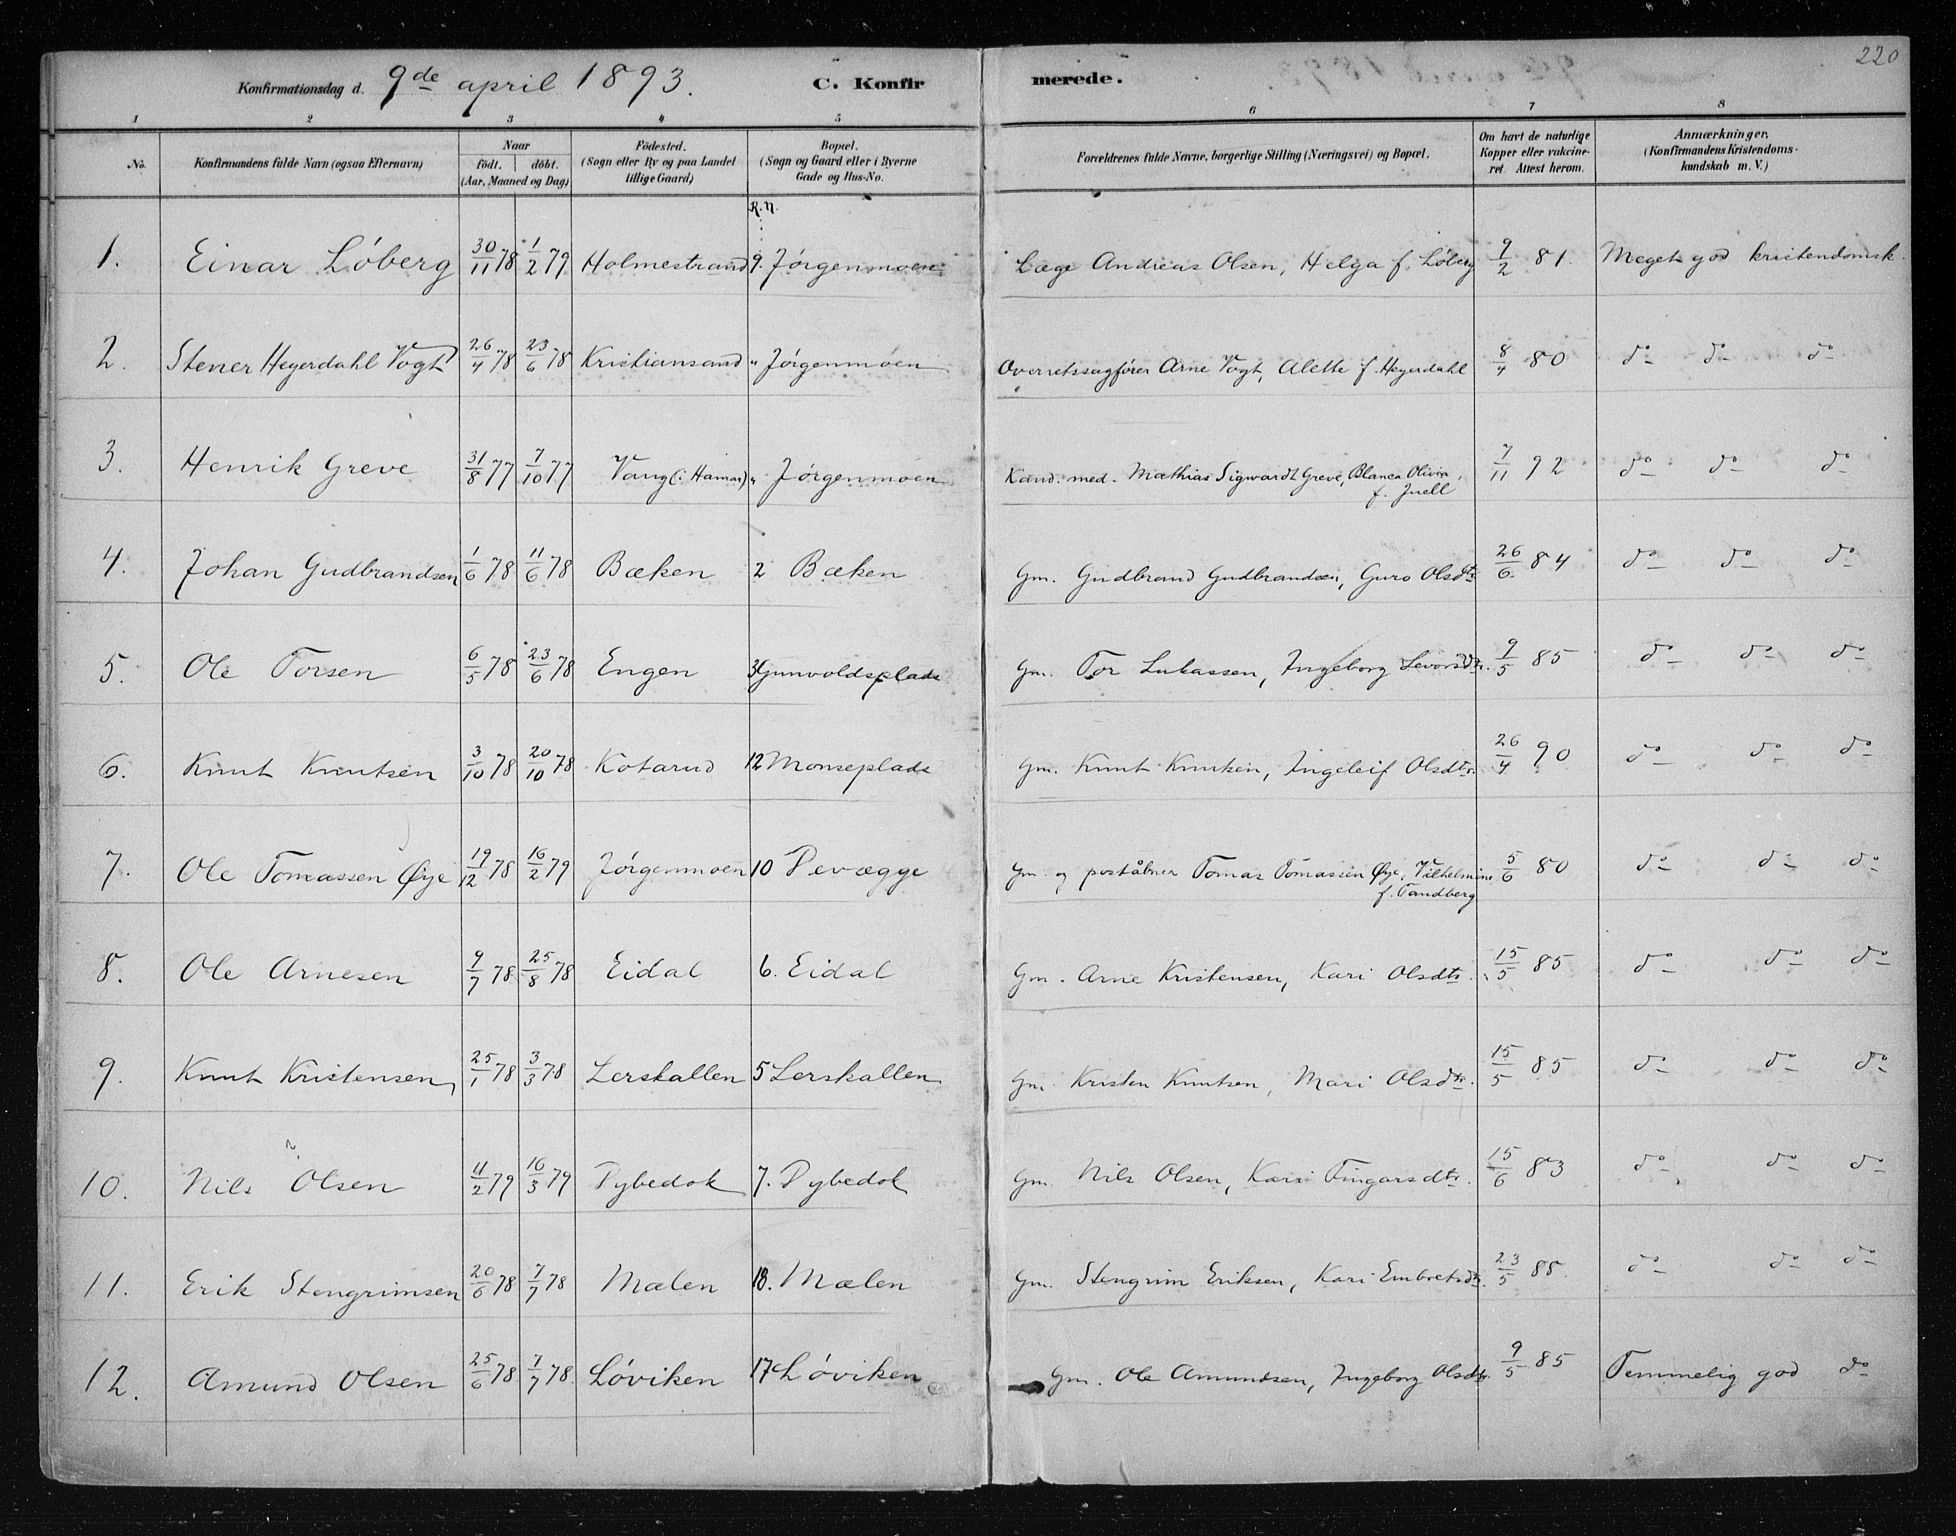 220
Konfirmationsdag d. 9de april 1893. C. Konfirmerede.
1 2 3 4 5 6 7 8
No. Konfirmandens fulde Navn (ogsaa Efternavn) Naar født. døbt. (Aar, Maaned og Dag) Fødested. (Sogn eller By og paa Landet tillige Gaard) Bopæl. (Sogn og Gaard eller i Byerne Gade og Hus-No. Forældrenes fulde Navne, borgerlige Stilling (Næringsvei) og Bopæl. Om havt de naturlige Kopper eller vakcineret. Attest herom. Anmærkninger, (Konfirmandens Kristendomskundskab m. V.)
R.N.
1. Einar Lóberg 30/11 78 1/2 79 Holmestrand 9. Jørgenmoen Læge Andreas Olsen, Helga f. Lóberg 9/2 81. Meget god kristendomsk.
2. Stener Heyerdahl Vogt 26/4 78 23/6 78 Kristiansand " Jørgenmoen Overretssagfører Arne Vogt, Alette f. Heyerdahl 8/4 80 do do do
3. Henrik Greve 31/8 77 7/10 77 Vang (i Hamar) " Jørgenmoen Kand. med. Mathias Sigwardt Greve, Blanca Olivia,
f. Juell 7/11 92 do do do
4. Johan Gudbrandsen 1/6 78 11/6 78 Bæken 2 Bæken Gm. Gudbrand Gudbrandsen, Guro Olsdtr 26/6 84 do do do
5. Ole Torsen 6/5 78 23/6 78 Engen 3 Gunvoldsplads Gm. Tor Lukassen, Ingeborg Levorsdtr. 9/5 85 do do do
6. Knut Knutsen 3/10 78 20/10 78 Kotarud 12 Monseplads Gm. Knut Knutsen, Ingeleif Olsdtr. 26/4 90 do do do
7. Ole Tomassen Øye 19/12 78 16/2 79 Jørgenmoen 10 Pevægge Gm. og poståbner Tomas Tomassen Øye, Vilhelmine
f. Tandberg 5/6 80 do do do
8. Ole Arnesen 9/7 78 25/8 78 Eidal 6. Eidal Gm. Arne Kristensen, Kari Olsdtr. 15/5 85 do do do
9. Knut Kristensen 25/1 78 3/3 78 Lerskallen 5 Lerskallen Gm. Kristen Knutsen, Mari Olsdtr. 15/5 85 do do do
10. Nils Olsen 11/2 79 16/3 79 Pybedok 7. Pybedok Gm. Nils Olsen, Kari Fingarsdtr. 15/6 83 do do do
11. Erik Stengrimsen 20/6 78 7/7 78 Mælen 18. Mælen Gm. Stengrim Eriksen, Kari Embretsdtr. 23/5 88. do do do
12. Amund Olsen 25/6 78 7/7 78. Lóviken 17 Lóviken Gm. Ole Amundsen, Ingeborg Olsdtr. 9/5 85 Temmelig god do